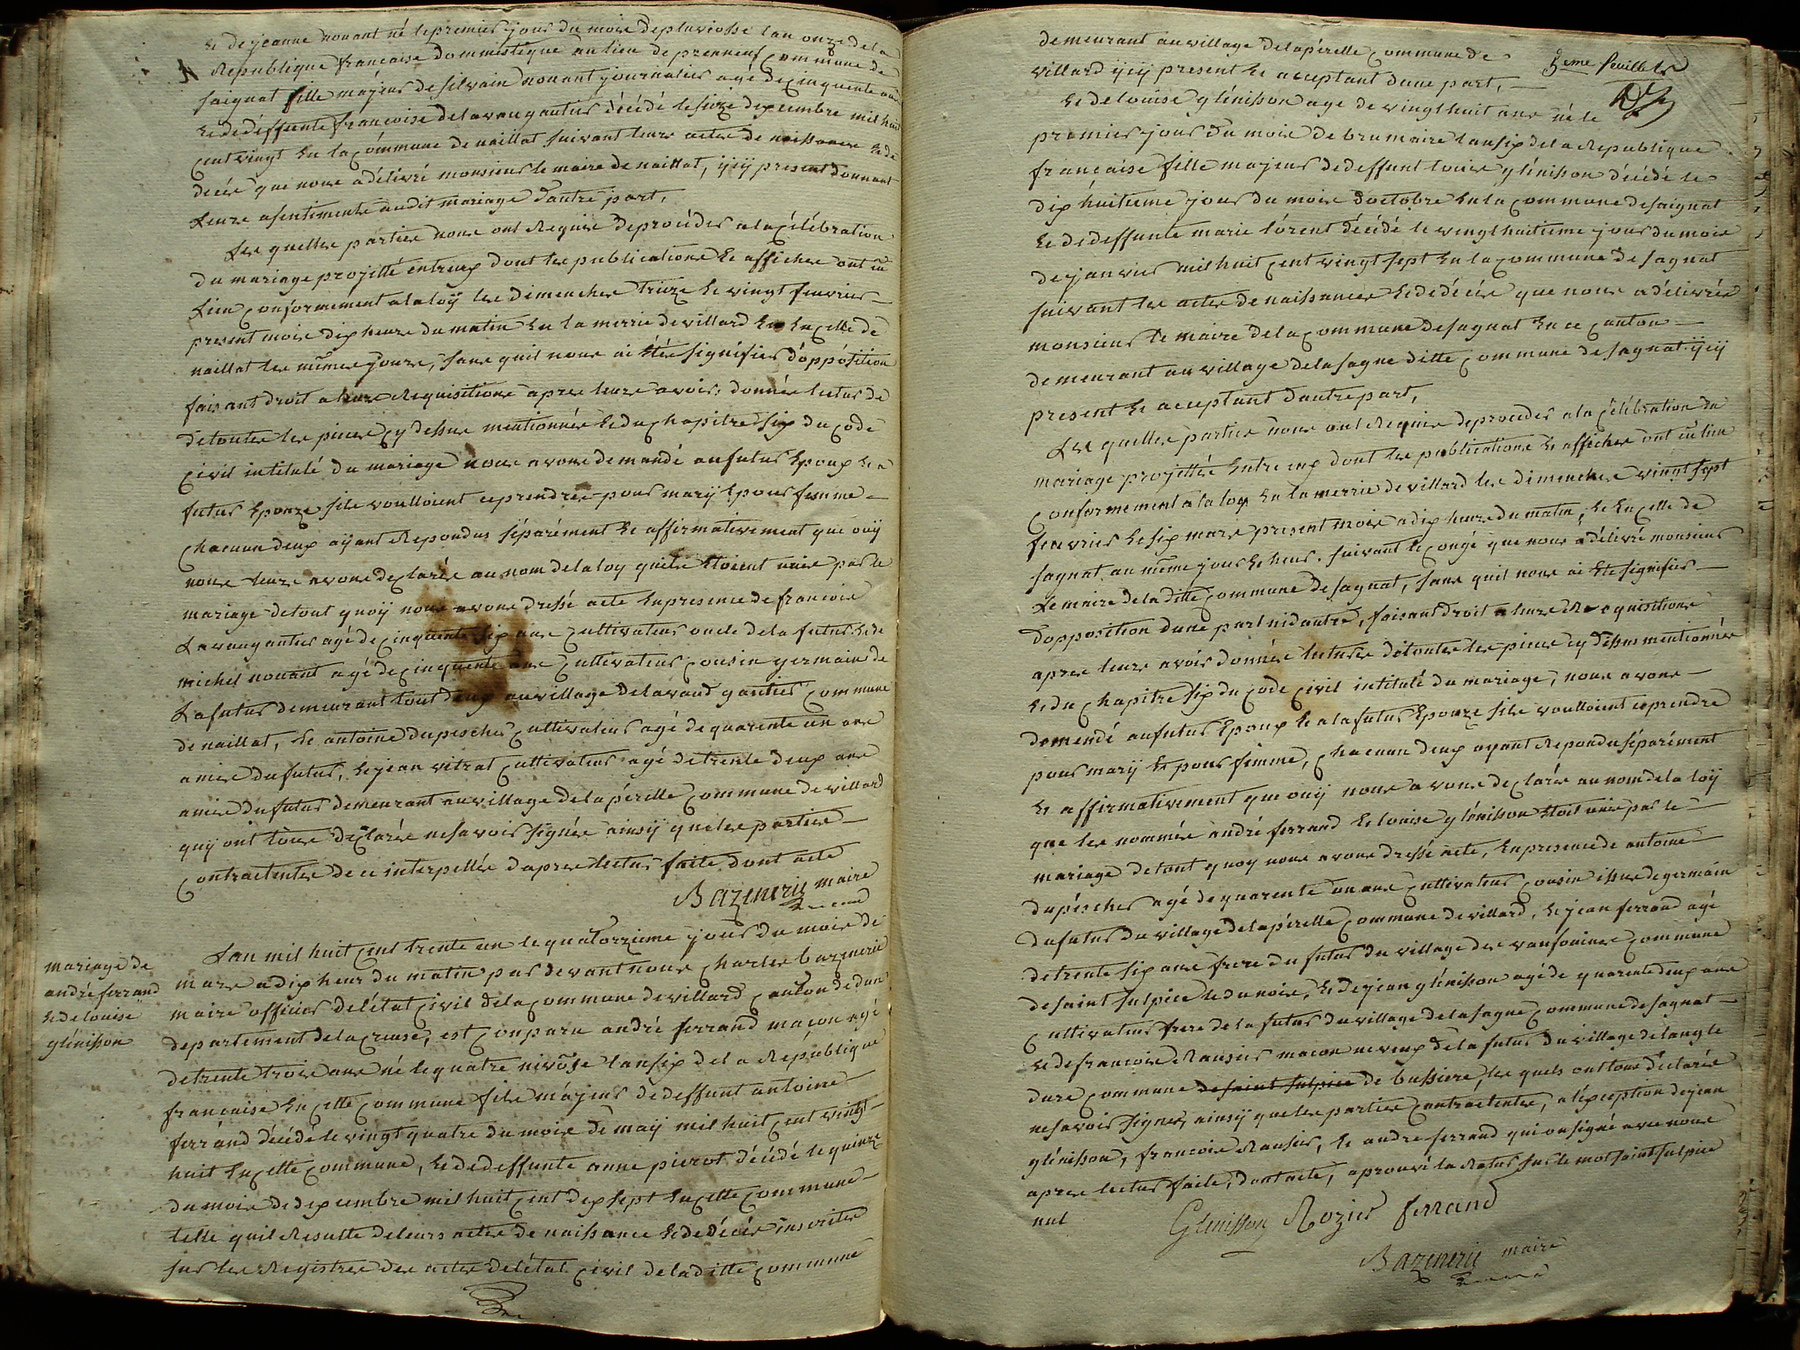 Et de jeanne nouant né le premier jour du mois de pluviosse l'an onze de la
Republique française dommestique au lieu de prennent commune de
saignat fille majeur de silvain nouant journalier agé de cinquente ans
Et de deffunte françoise delavaugautier décédé le seize dexcembre mil huit
cent vingt En la commune de naillat suivant leurs actes de naissance Et de
décès que nous a délivré monsieur le maire de naillat, ijcÿ present donnant
Leurs assentiments audit mariage d'autre part,
Les quelles parties nous ont Requis de procéder a la célébration
du mariage projetté entreux dont les publications Et affiches ont eu
Lieu conformement a la loÿ les dimenches treize Et vingt feuvrier
present mois dix heure du matin En la merrie de villard En En celle de
naillat les mêmes jours, sans quil nous ai Eté signifier d'oppósition
faisant droit a leurs Requisitions apres leurs avoir donnée lecture de
de toutes les pieces cy dessus mentionnée Et du chapitre six du code
civil intitulé du mariage nous avons demandé au futur Epoux Et a
futur Epouze s'ils voulloient ce prendre pour marÿ Epour femme
chacun deux aÿant Repondus séparément Et affirmativement que ouÿ
nous leurs avons declarée au nom de la loy quils Etoient unis par le
mariage de tout quoÿ nous avons dressé acte En presence de francois
Lavaugautier agé de cinquente six ans cultivateur oncle de la futur Et de
michel nouant agé de cinquente ans cultivateur cousin germain de
La futur demeurant tout deux au village de lavaud gautier commune
de naillat, Et antoine dupescher cultivateur agé de quarente un ans
amis du futur, Et jean vitrat cultivateur agé de trente deux ans
amis du futur demeurant au village de la pérelle commune de villard
quÿ ont tous declarée ne savoir signée ainsÿ que les parties
contractentes de ce interpellée dapres lectur faite dont acte
Bazenerie maire
mariage de
andré ferrand
Et de louise
glénisson
L'an mil huit cent trente un le quatorzieme jour du mois de
mars a dix heur du matin par devant nous charles bazenerie
maire officier de l'état civil de la commune de villard canton de dun
departement de la creuse, est conparu andré ferrand maçon agé
de trente trois ans né le quatre nivôse l'an six de la République
française En cette commune fils májeur de deffunt antoine
ferrand décédé le vingt quatre du mois de maÿ mil huit cent vingt
huit En cette commune, Et de deffunte anne pierot décédé le quinze
du mois de dexcembre mil huit cent dix sept En cette commune
telle quil Resulte de leurs actes de naissance Et de décès inscrites
sur les Registres des actes de l'état civil de la ditte commune
demeurant au village de la pérelle commune de
villard ijcÿ present Et acceptant dune part,
3eme feuillet
Et de louise glénisson agé de vingt huit ans né le
premier jour du mois de brumaire l'an six de la Republique
française fille majeur de deffunt louis glénisson décédé le
dix huitieme jour du mois d'octobre En la commune de saignat
Et de deffunte marie lórent décédé le vingt huitieme jour du mois
de janvier mil huit cent vingt sept En la commune de sagnat
suivant les actes de naissances Et de décès que nous a délivrée
monsieur le maire de la commune de sagnat En ce canton
demeurant au village de la sagne ditte commune de sagnat ijcÿ
present Et acceptant d'autre part,
Les quelles parties nous ont Requis de proceder a la célébration du
mariage projettée Entre eux dont les publications Et affiches ont eu lieu
conformement a la loy En la merrie de villard les dimenches vingt sept
feuvrier Et six mars present mois a dix heure du matin, Et En celle de
sagnat au même jour Et heur. suivant le congé que nous a délivré monsieur
Le maire de la ditte commune de sagnat, sans quil nous ai Eté signifier
d'opposition dune part ni dautre, faisant droit a leurs Requisitions
apres leurs avoir donnée lecture de toutes les pieces cy dessus mentionnée
Et du chapitre six du code civil intitulé du mariage, nous avons
demandé au futur Epoux Et a la futur Epouze s'ils voulloient ce prendre
pour marÿ Et pour femme, chacun deux ayant Repondu séparément
Et affirmativement que ouÿ nous avons declarée au nom de la loÿ
que les nommée andré ferrand Et louise glénisson Etoit unis par le
mariage de tout quoy nous avons dressé acte, En presence de antoine
dupéscher agé de quarente un ans cultivateur cousin issus de germain
du futur du village de la pérelle commune de villard, Et jean ferrand agé
de trente six ans frere du futur du village des vauxfoinées commune
de saint sulpice le dunois, Et de jean glénisson agé de quarente deux ans
cultivateur frere de la futur du village de la sagne commune de sagnat
Et de francois Rausier macon neveux de la futur du village de langle
dure commune de saint sulpice de bussiere, les quels ont tous déclarée
ne savoir signer, ainsÿ que les parties contractentes, a l'exception de jean
glénisson, francois Rausier, Et andre ferrand qui on signé avec nous
apres lectur faite, dont acte, aprouvé la Ratur sur le mot saint sulpice
nul
Glenisson Rozier ferrand
Bazenerie maire